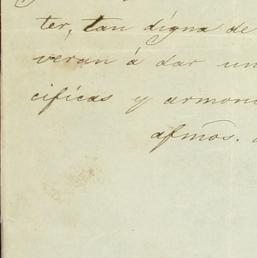 ter, tan digna de
veran á dar un
cificas y armoni
afmos.